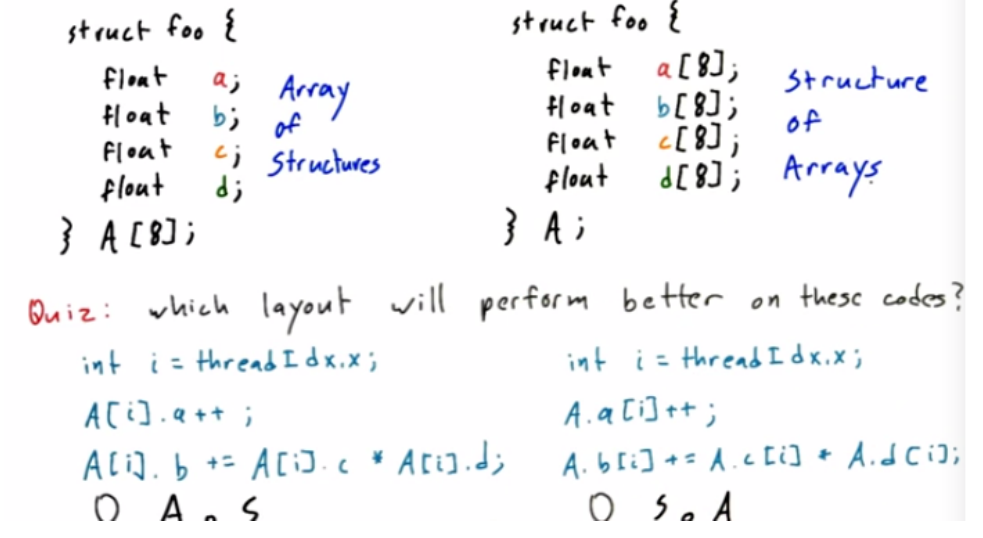 struct foo {
float a;
float b;
float c;
float d;
} A[8];
Array
of
Structures
struct foo {
float a[8];
float b[8];
float c[8];
float d[8];
} A;
Structure
of
Arrays
Quiz: which layout will perform better on these codes?
int i = threadIdx.x;
A[i].a++;
A[i].b += A[i].c * A[i].d;
O A.S
int i = threadIdx.x;
A.a[i]++;
A.b[i] += A.c[i] * A.d[i];
O S.A